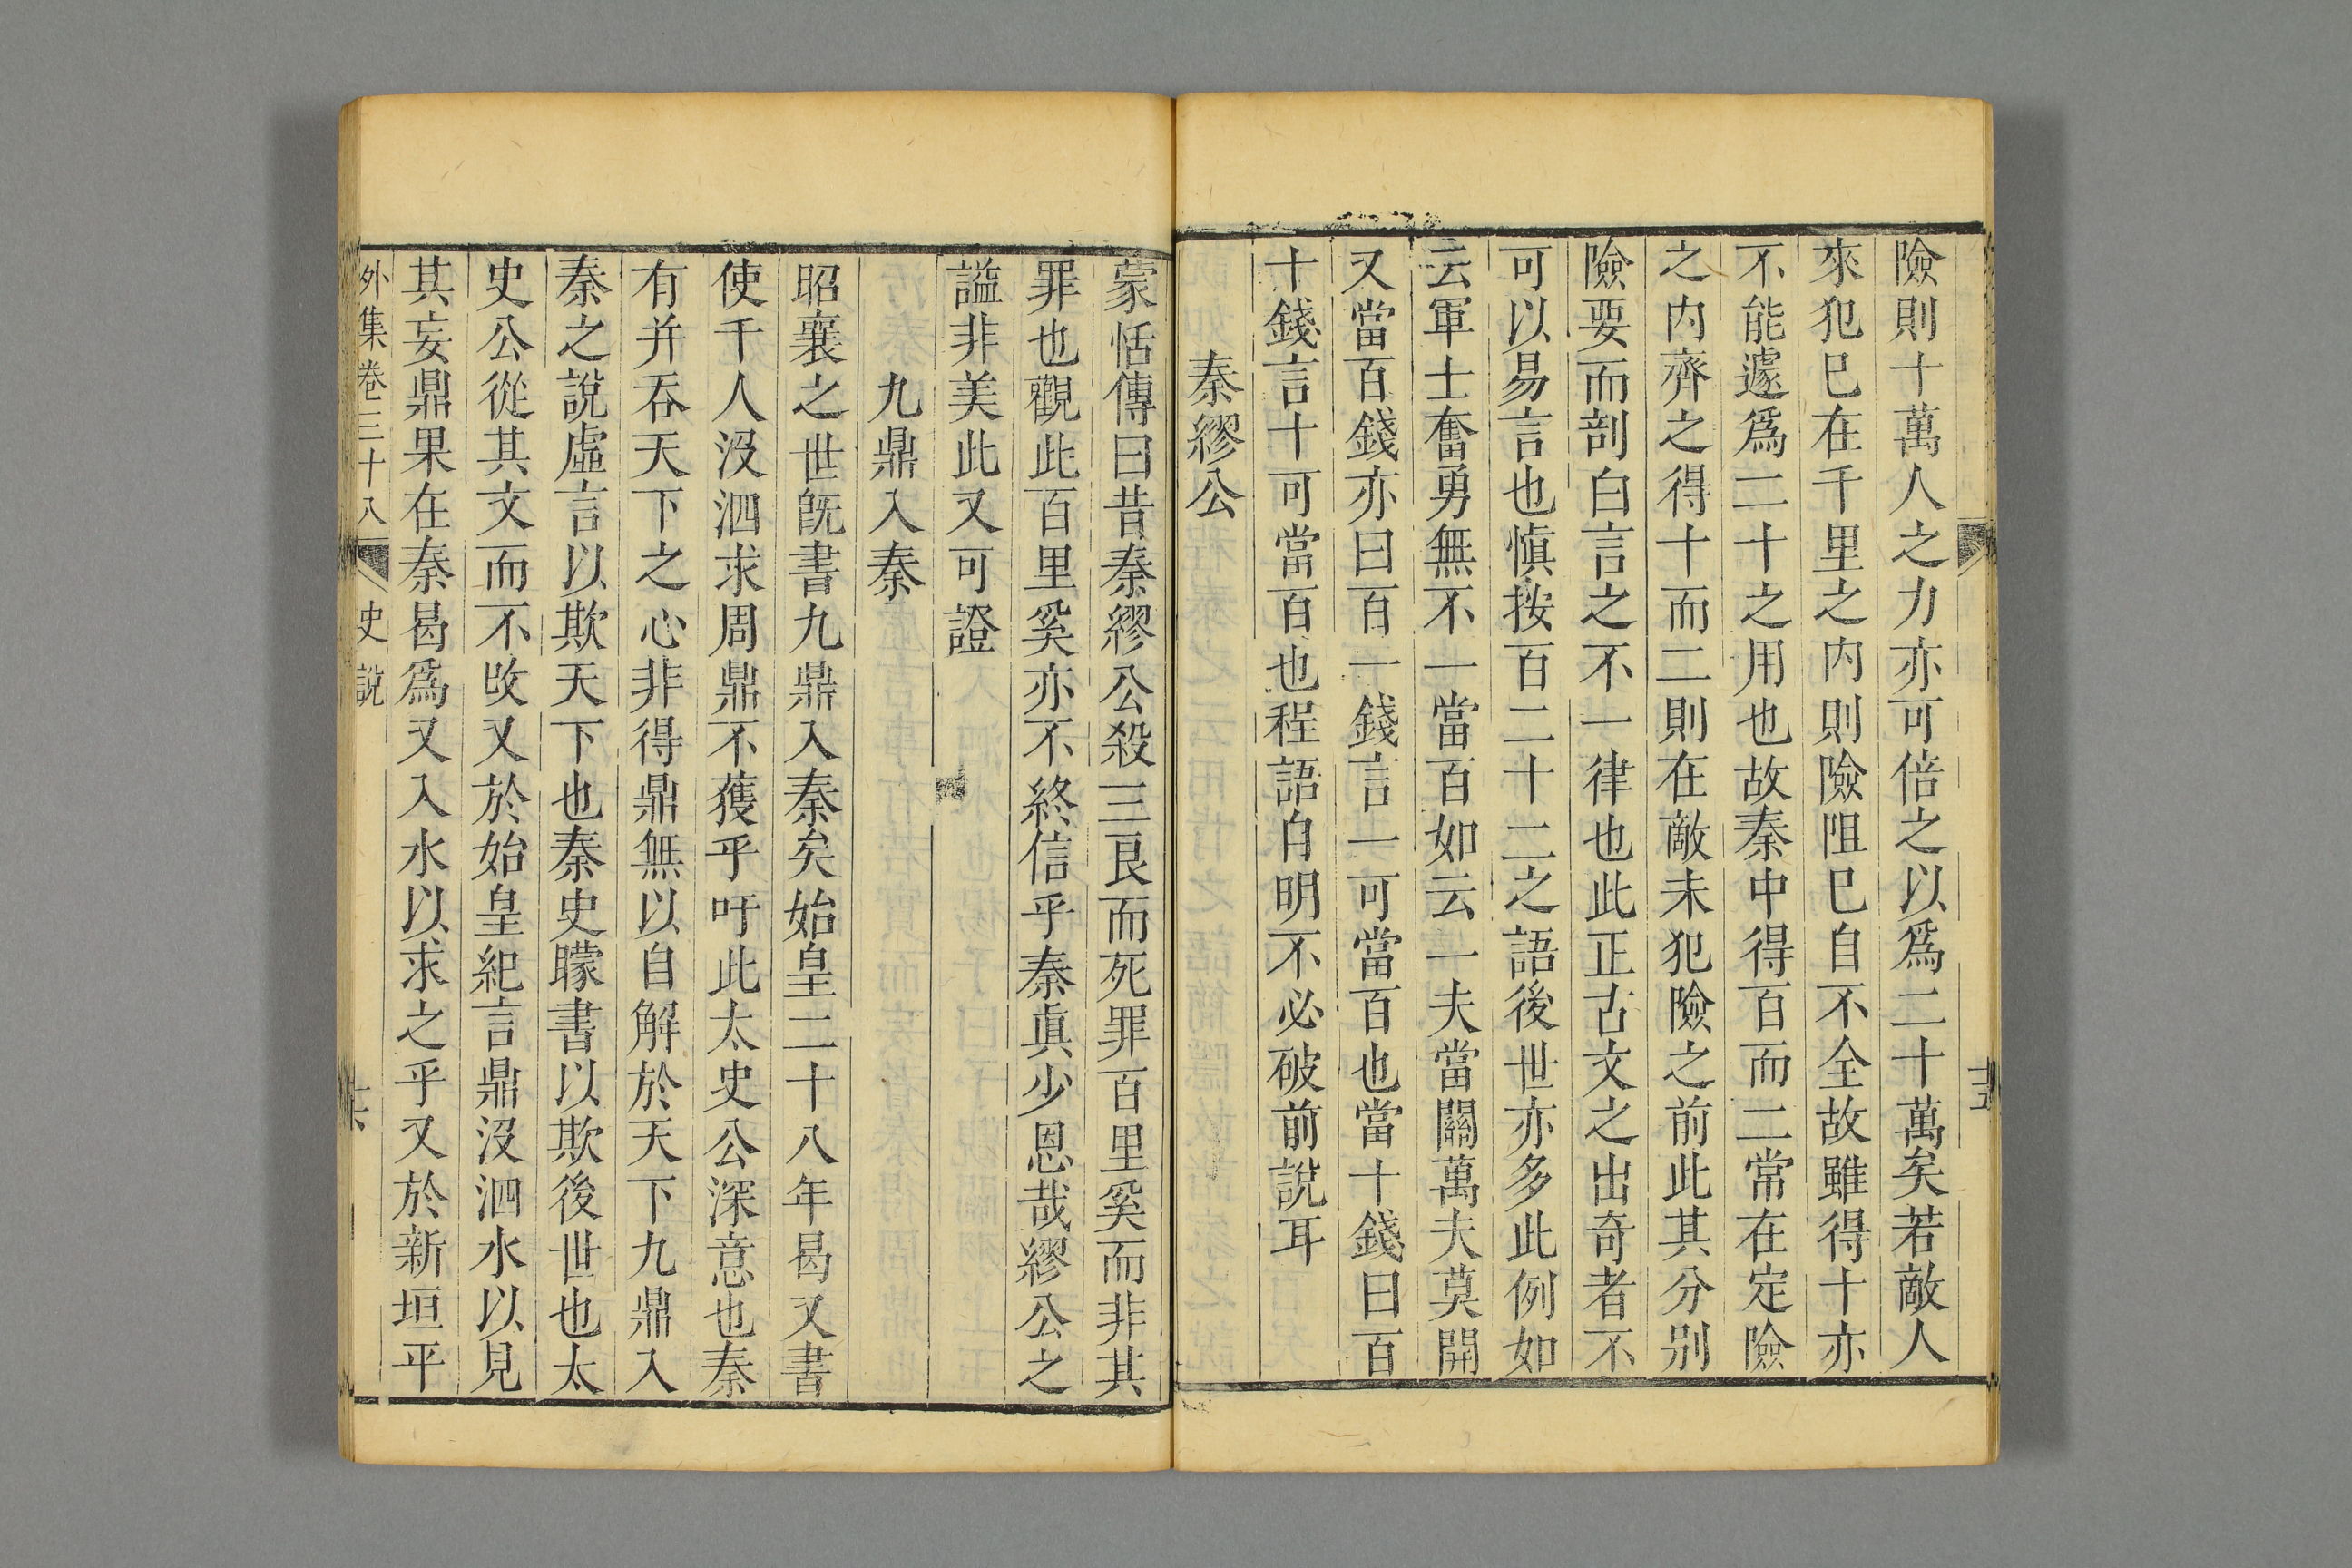 險則十萬人之力亦可倍之以爲二十萬矣若敵人
來犯巳在千里之内則險阻巳自不全故雖得十亦
不能遽爲二十之用也故秦中得百而二常在定險
之内齊之得十而二則在敵未犯險之前此其分别
險要而剖白言之不一律也此正古文之出奇者不
可以易言也愼按百二十二之語後世亦多此例如
云軍士奮勇無不一當百如云一夫當關萬夫莫開
又當百錢亦曰百一錢言一可當百也當十錢曰百
十錢言十可當百也程語自明不必破前說耳
秦繆公
蒙恬傳曰昔秦繆公殺三良而死罪百里奚而非其
罪也觀此百里奚亦不終信乎秦眞少恩哉繆公之
謚非美此又可證
九鼎入秦
昭襄之世旣書九鼎入秦矣始皇二十八年曷又書
使千人沒泗求周鼎不獲乎吁此太史公深意也秦
有并吞天下之心非得鼎無以自解於天下九鼎入
秦之說虛言以欺天下也秦史矇書以欺後世也太
史公從其文而不改又於始皇紀言鼎沒泗水以見
其妄鼎果在秦曷爲又入水以求之乎又於新垣平
外集卷三十八 史說